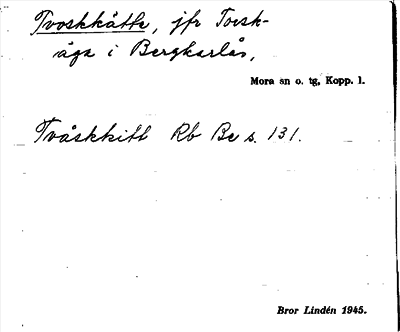 Tvoskkätte, jfr Torsk-
äga i Bergkarlås,
Mora sn o. tg, Kopp. l.
Tvåskkitt Rb Be s. 131.
Bror Lindén 1945.